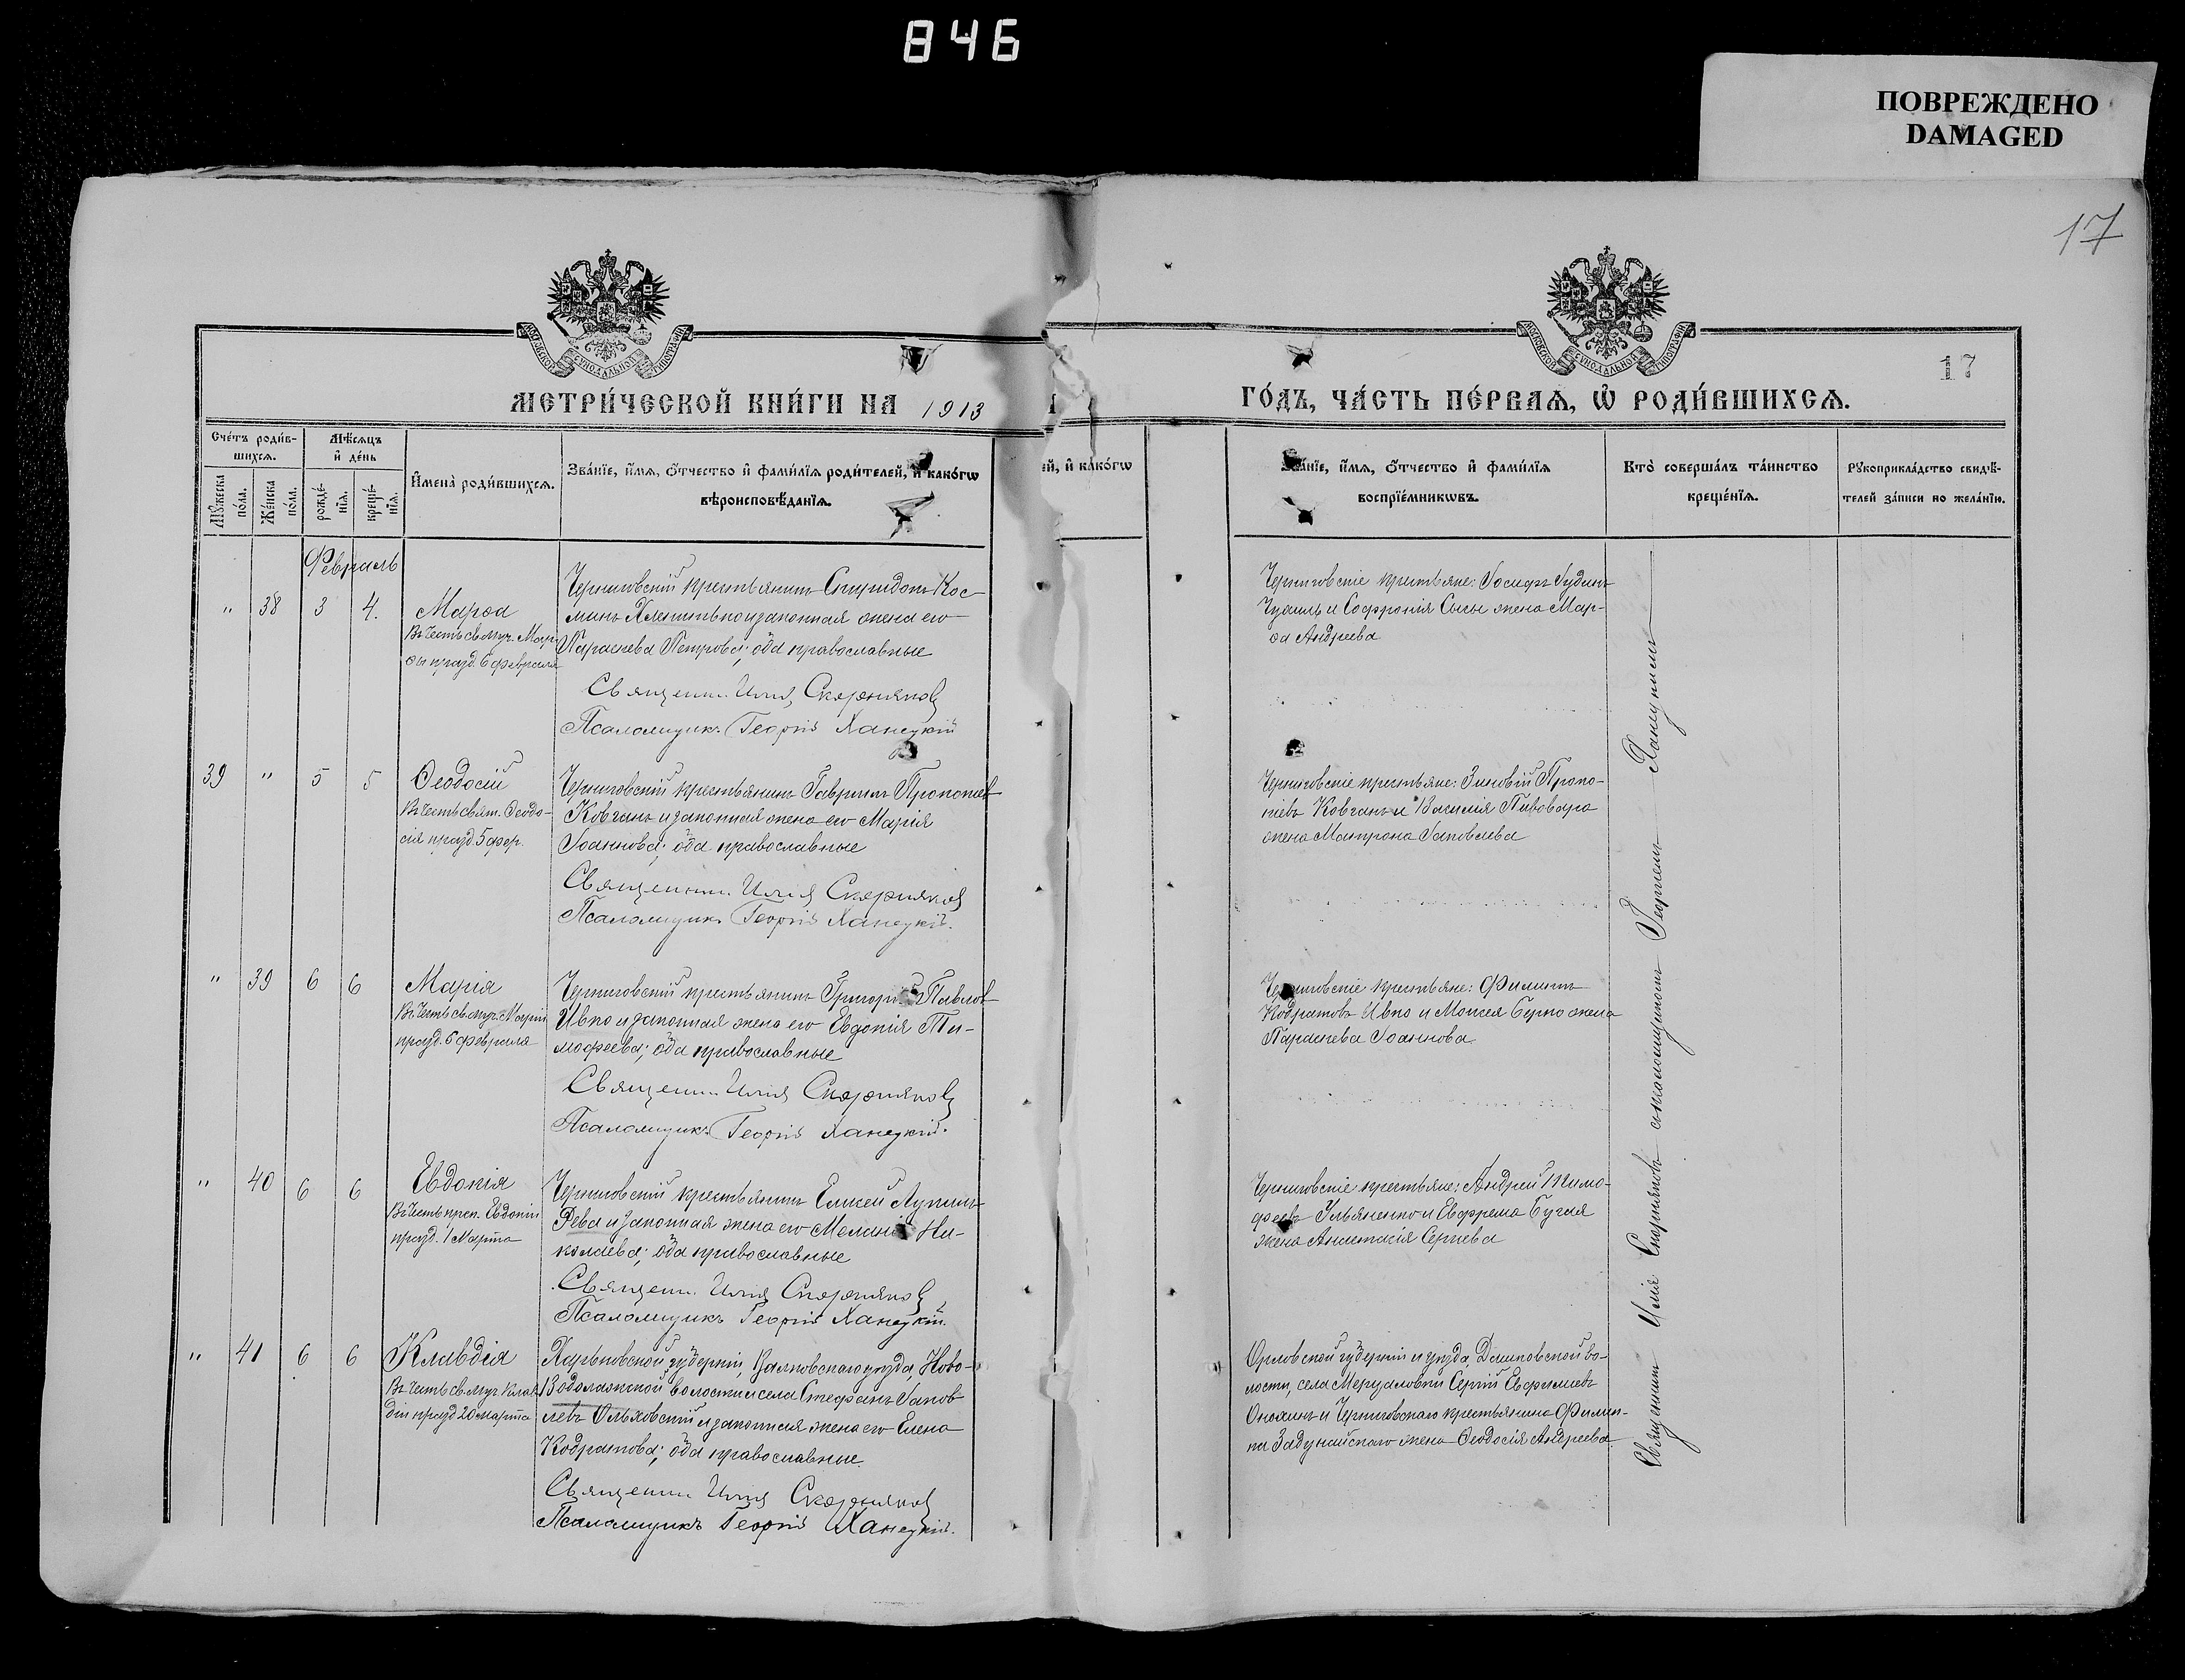 846
ПОВРЕЖДЕНО
DAMAGED
17
МОСКОВСКОЙ СѴНОДАЛЬНОЙ ТИПОГРАФІИ
МОСКОВСКОЙ СѴНОДАЛЬНОЙ ТИПОГРАФІИ
17
МЕТРИ́ЧЕСКОЙ КНИ́ГИ НА 1913
ГО́ДЪ, ЧА́СТЬ ПЕ́РВАѦ, Ѡ҆ РОДИ́ВШИХСѦ.
Сче́тъ роди́в-
шихсѧ.
Мꙋ́жеска по́ла.
Же́нска по́ла.
Мѣ́сѧцъ
и҆ де́нь
рожде́-
нїѧ.
креще́-
нїѧ.
И҆мена̀ роди́вшихсѧ.
Зва́нїе, и҆́мѧ, ѻ҆́тчество и҆ фами́лїѧ роди́телей, и҆ како́гѡ
вѣроисповѣ́данїѧ.
ей, и҆ како́гѡ
Зва́нїе, и҆́мѧ, ѻ҆́тчество и҆ фами́лїѧ
воспрїе́мникѡвъ.
Кто̀ соверша́лъ та́инство
креще́нїѧ.
Рꙋкоприкла́дство свидѣ́-
телей за́писи по жела́нїю.
Февраль
" 38 3 4.
Марѳа
Въ честь св. муч. Мар-
ѳы празд. 6 февраля
Черниговскій крестьянинъ Спиридонъ Кос-
минъ и законная жена его
Параскева Петрова; оба православные
Священн. Илія Скорняковъ
Псаломщикъ Георгій Ханецкій
Черниговскіе крестьяне:
и Софронія жена Мар-
ѳа Андреева
39 " 5 5
Ѳеодосій
Въ честь свят. Ѳеодо-
сія празд. 5 фев.
Черниговскій крестьянинъ Гавріилъ Прокопіевъ
Ковганъ и законная жена его Марія
Іоаннова; оба православные
Священн. Илія Скорняковъ
Псаломщикъ Георгій Ханецкій.
Черниговскіе крестьяне: Зиновій Проко-
піевъ Ковганъ и Василія Пивовара
жена Матрона Іаковлева
" 39 6 6
Марія
Въ честь св. муч. Маріи
празд. 6 февраля
Черниговскій крестьянинъ Григорій Павловъ
Ивко и законная жена его Евдокія Ти-
мофеева; оба православные
Священн. Илія Скорняковъ
Псаломщикъ Георгій Ханецкій.
Черниговскіе крестьяне: Филиппъ
Кодратовъ Ивко и Моисея жена
Параскева Іоаннова
" 40 6 6
Евдокія
Въ честь преп. Евдокіи
празд. 1 Марта
Черниговскій крестьянинъ Елисей Лукинъ
Рева и законная жена его Меланія Ни-
колаева; оба православные
Священн. Илія Скорняковъ
Псаломщикъ Георгій Ханецкій.
Черниговскіе крестьяне: Андрей Тимо-
феевъ Ульяненко и Евфрема Бугая
жена Анастасія Сергіева
" 41 6 6
Клавдія
Въ честь св. муч. Клав-
діи празд 20 марта
Харьковской губерніи, Валковскаго уѣзда, Ново-
Водолажской волости и села Стефанъ Іаков-
левъ Ольховскій и законная жена его Елена
Кодратова; оба православные.
Священн. Илія Скорняковъ
Псаломщикъ Георгій Ханецкій.
Орловской губерніи и уѣзда, волости, села Сергій Евфиміевъ
и Черниговскаго крестьянина Филип-
па Задунайскаго жена Ѳеодосія Андреева
Священникъ Илія Скорняковъ съ псаломщикомъ Георгіемъ Ханецкимъ